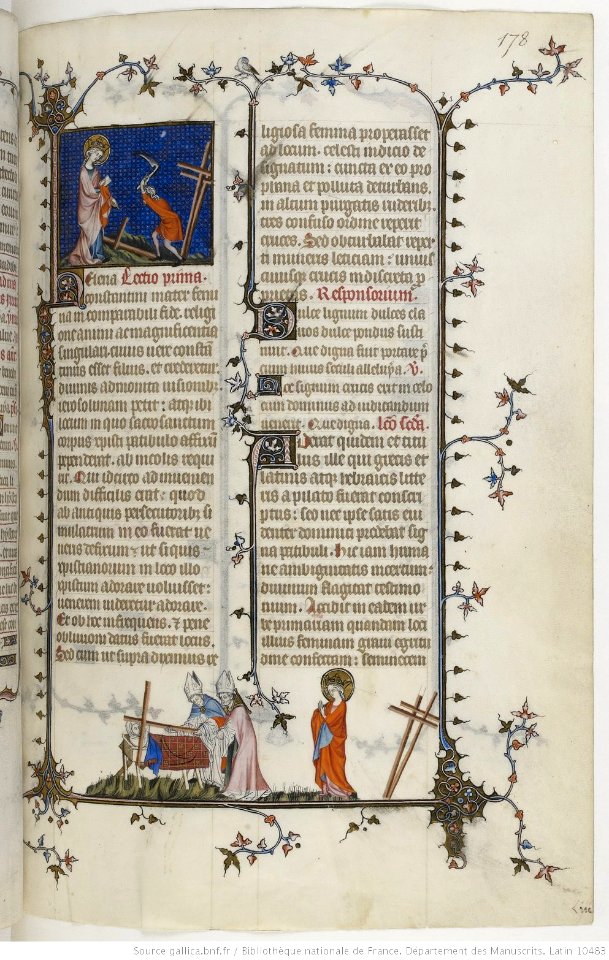 178
Helena Lectio prima.
constantini mater femi
na incomparabili fide. religi
one animi ac magnificentia
singulari. cuius uere constã
tinus esset filius. et crederetur:
diuinis admonita uisionib;
ierosolimam petiit: atq; ibi
locum in quo sacrosanctum
corpus xpisti patibulo affixũ
pependerat. ab incolis requi
rit. Qui idcirco ad inuenien
dum difficilis erat: quod
ab antiquis persecutorib; si
mulacrum in eo fuerat ue
neris defixum: ut si quis
xpistianorum in loco illo
xpistum adorare uoluisset:
uenerem uideretur adorare.
Et ob hoc infrequens. et pene
obliuioni datus fuerat locus.
Sed cum ut supra diximus re
ligiosa femina properasset
ad locum. celesti indicio de
signatum: cuncta ex eo pro
phana et polluta deturbans,
in altum purgatis ruderib;
tres confuso ordine reperit
cruces. Sed obturbabat reper
ti muneris leticiam: unius
cuiusq; crucis indiscreta p
prietas. Responsorium.
Dulce lignum dulces cla
uos dulce pondus susti
nuit. Que digna fuit portare p̃
cium huius seculi alleluya. V.
Hoc signum crucis erit in celo
cum dominus ad iudicandum
uenerit. Que digna. Lcõ scđa.
Aderat quidem et titu
lus ille qui grecis et
latinis atq; hebraicis litte
ris a pilato fuerat conscri
ptus: sed nec ipse satis eui
denter dominici prodebat sig
na patibuli. Hic iam huma
ne ambiguitatis incertum:
diuinum flagitat testimo
nium. Accidit in eadem ur
be primariam quandam loci
illius feminam graui egritu
dine confectam: seminecem
Source gallica.bnf.fr / Bibliothèque nationale de France. Département des Manuscrits. Latin 10483